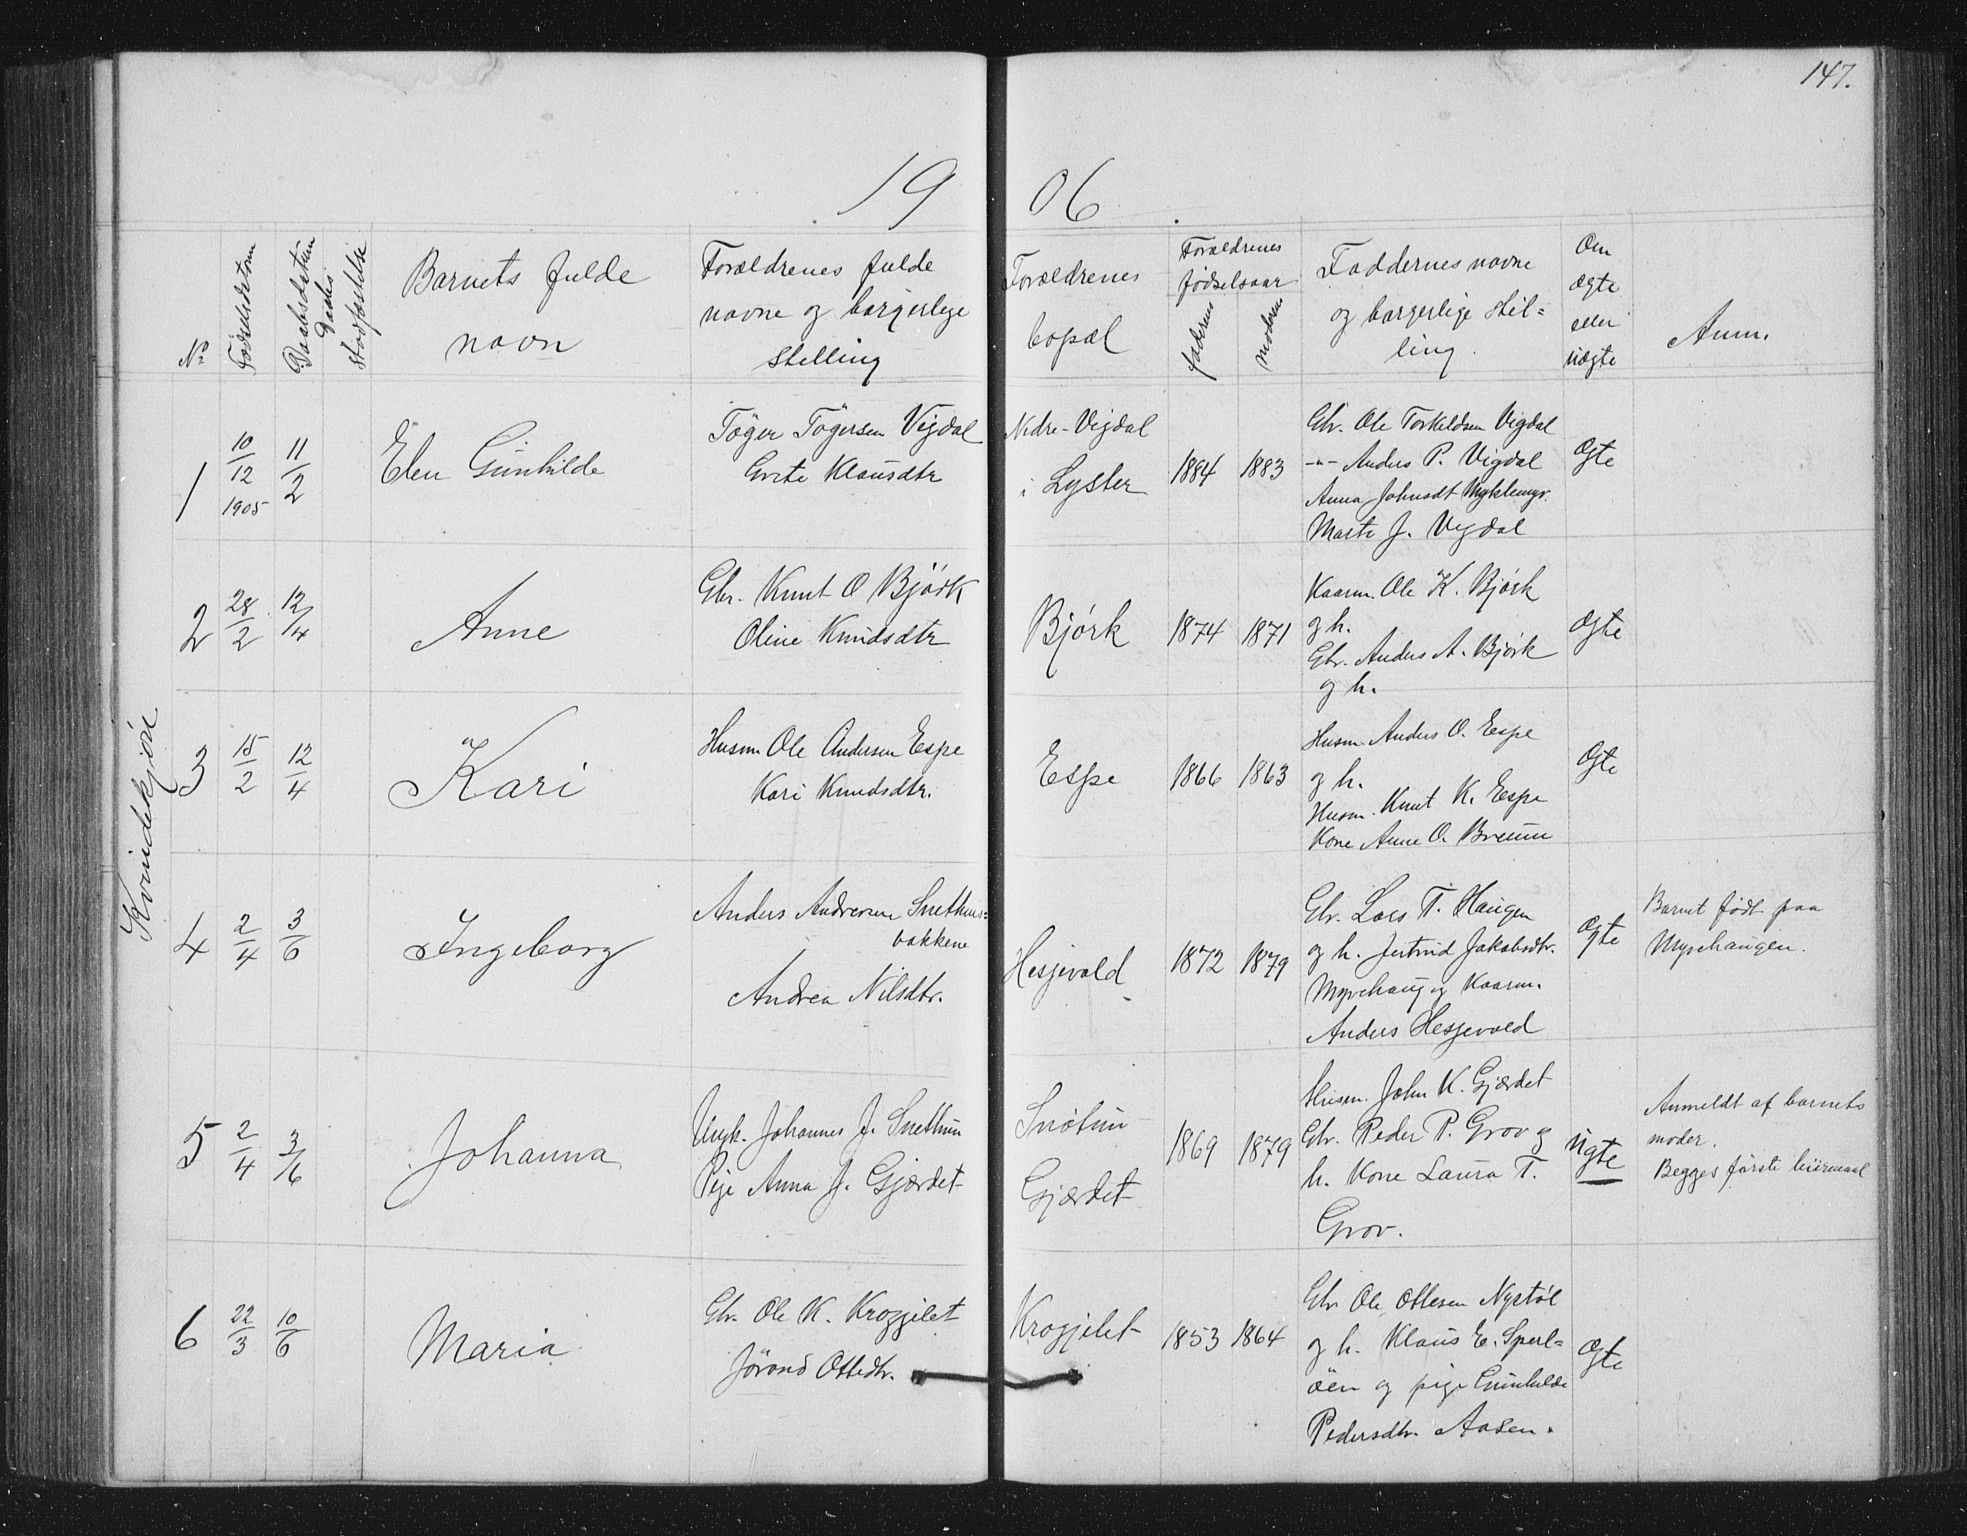 147.
1906
Kvindekjøn
No
Fødselsdatum
Daabsdatum
Daabs
Stadfæstelse
Barnets fulde
navn
Forældrenes fulde
navne og borgerlige
stilling
Forældrenes
bopæl
Forældrenes
fødselsaar
faderens
moderens
Faddernes navne
og borgerlige stil=
ling.
Om
ægte
eller
uægte
Anm.
1
10/12 1905
11/2
Elen Gunhilde
Tøger Tøgersen Vigdal
Grete Klausdtr
Nedre-Vigdal
i Lyster
1884
1883
Gbr. Ole Torkeldsen Vigdal
-"- Anders P. Vigdal
Anna Johnsdt Myklemyr.
Marte J. Vigdal
Ægte
2
28/2
12/4
Anne
Gbr. Knut O Bjørk
Oline Knudsdtr
Bjørk
1874
1871
Kaarm. Ole K. Bjørk
og h.
Gbr. Anders A. Bjørk
og h.
Ægte
3
15/2
12/4
Kari
Husm Ole Andersen Espe
Kari Knudsdtr.
Espe
1866
1863
Husm. Anders O. Espe
og h.
Husm. Knut K. Espe
Kone Anne O. Breum
Ægte
4
2/4
3/6
Ingeborg
Anders Andersen Snethuns=
bakkene
Andrea Nilsdtr.
Hesjevold
1872
1879
Gbr. Lars T. Haugen
og h. Jertrud Jakobsdtr.
Myrehaug og Kaarm.
Anders Hesjevold
Ægte
Barnet født paa
Myrehaugen.
5
2/4
3/6
Johanna
Ungk. Johannes J. Snethun
Pige Anna J. Gjærdet
Snøtun
Gjærdet
1869
1879
Husm. John K. Gjærdet
Gbr. Peder P. Grov og
h. Kone Laura T.
Grov.
Uægte
Anmeldt af barnets
moder.
Begges første leiermaal
6
22/3
10/6
Maria
Gbr. Ole K. Krogjilet
Jørand Ottedtr.
Krogjilet
1853
1864
Gbr Ole Ottesen Nystøl
og h. Klaus E. Sperl=
øen og pige Gunhilde
Pedersdtr. Aasen.
Ægte